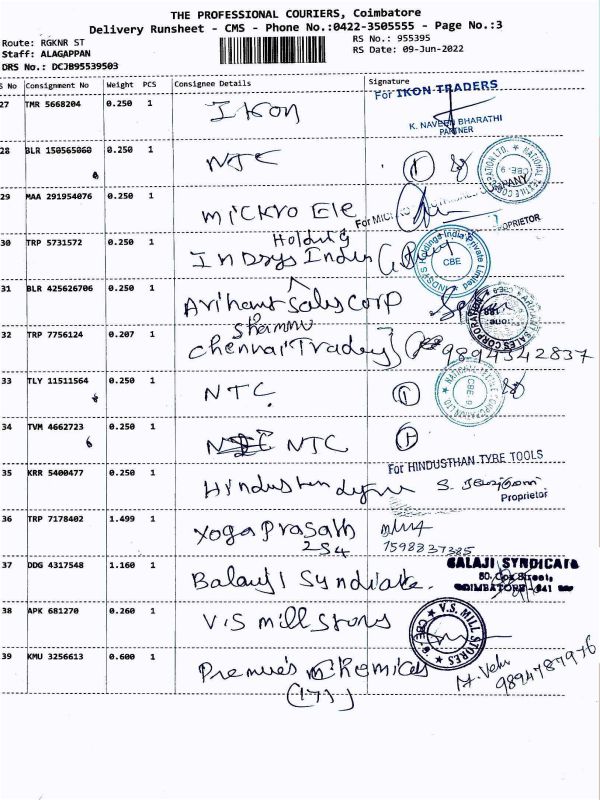 THE PROFESSIONAL COURIERS, Coimbatore
Delivery Runsheet - CMS - Phone No.:0422-3505555 - Page No.:3
Route: RGKNR ST
RS No.: 955395
Staff: ALAGAPPAN
RS Date: 09-Jun-2022
DRS No.: DCJB95539503
S No Consignment No Weight PCS Consignee Details Signature
27 TMR 5668204 0.250 1 Ikon For IKON TRADERS
K. NAVEEN BHARATHI
PARTNER
28 BLR 150565060 0.250 1 NTC 1
NATIONAL TEXTILE CORPORATION LTD. CBE-9
29 MAA 291954076 0.250 1 Mickro Ele
PROPRIETOR
30 TRP 5731572 0.250 1 Holding
Indsys Indus
INDSYS Holdings India Private Limited CBE
31 BLR 425626706 0.250 1 Arihant Sales Corp
ARIHANT SALES CORPORATION
32 TRP 7756124 0.207 1 Shammu
Chennai Traders 9894342837
33 TLY 11511564 0.250 1 NTC 1
NATIONAL TEXTILE CORPORATION LTD. CBE-9
34 TVM 4662723 0.250 1 NTC 1
35 KRR 5400477 0.250 1 Hindusthan tyre For HINDUSTHAN TYRE TOOLS
Proprietor
36 TRP 7178402 1.499 1 Yoga Prasath
254
37 DDG 4317548 1.160 1 Balaji Syndicate. BALAJI SYNDICATE
50, Cox Street,
COIMBATORE - 641
38 APK 681270 0.260 1 V.S mill stores
V.S. MILL STORES CBE-9
39 KMU 3256613 0.600 1 Premier's Chemicals
(171)
M. Velu
9894787976